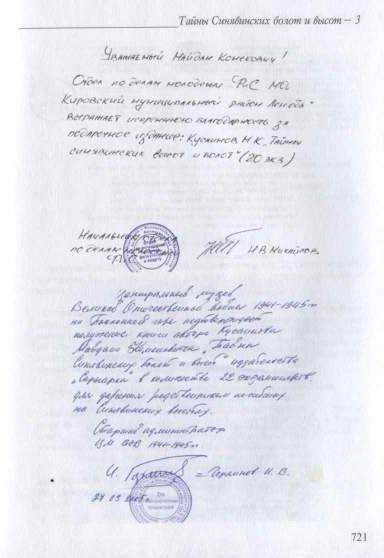 Тайны Синявинских болот и высот – 3
Уважаемый Майдан Комекович!
Отдел по делам молодёжи ФКС МО
Кировский муниципальный район Ленобл"
выражает искреннюю благодарность за
подарочное издание: Кусаинов М.К. „Тайны
синявинских высот и болот" (20 экз)
Начальник
по делам
ФКС
Центральный музей
Великой Отечественной войны 1941-1945гг
на Поклонной горе подтверждает
получение книги автора Кусаинова
Майдана Комековича „Тайны
Синявинских болот и высот" издательство
в количестве 22 экземпляров
для дарения родственникам погибших
на Синявинских высотах.
Старший администратор
ЦМ ВОВ 1941-1945гг.
И. В.
27 05 2005г
721